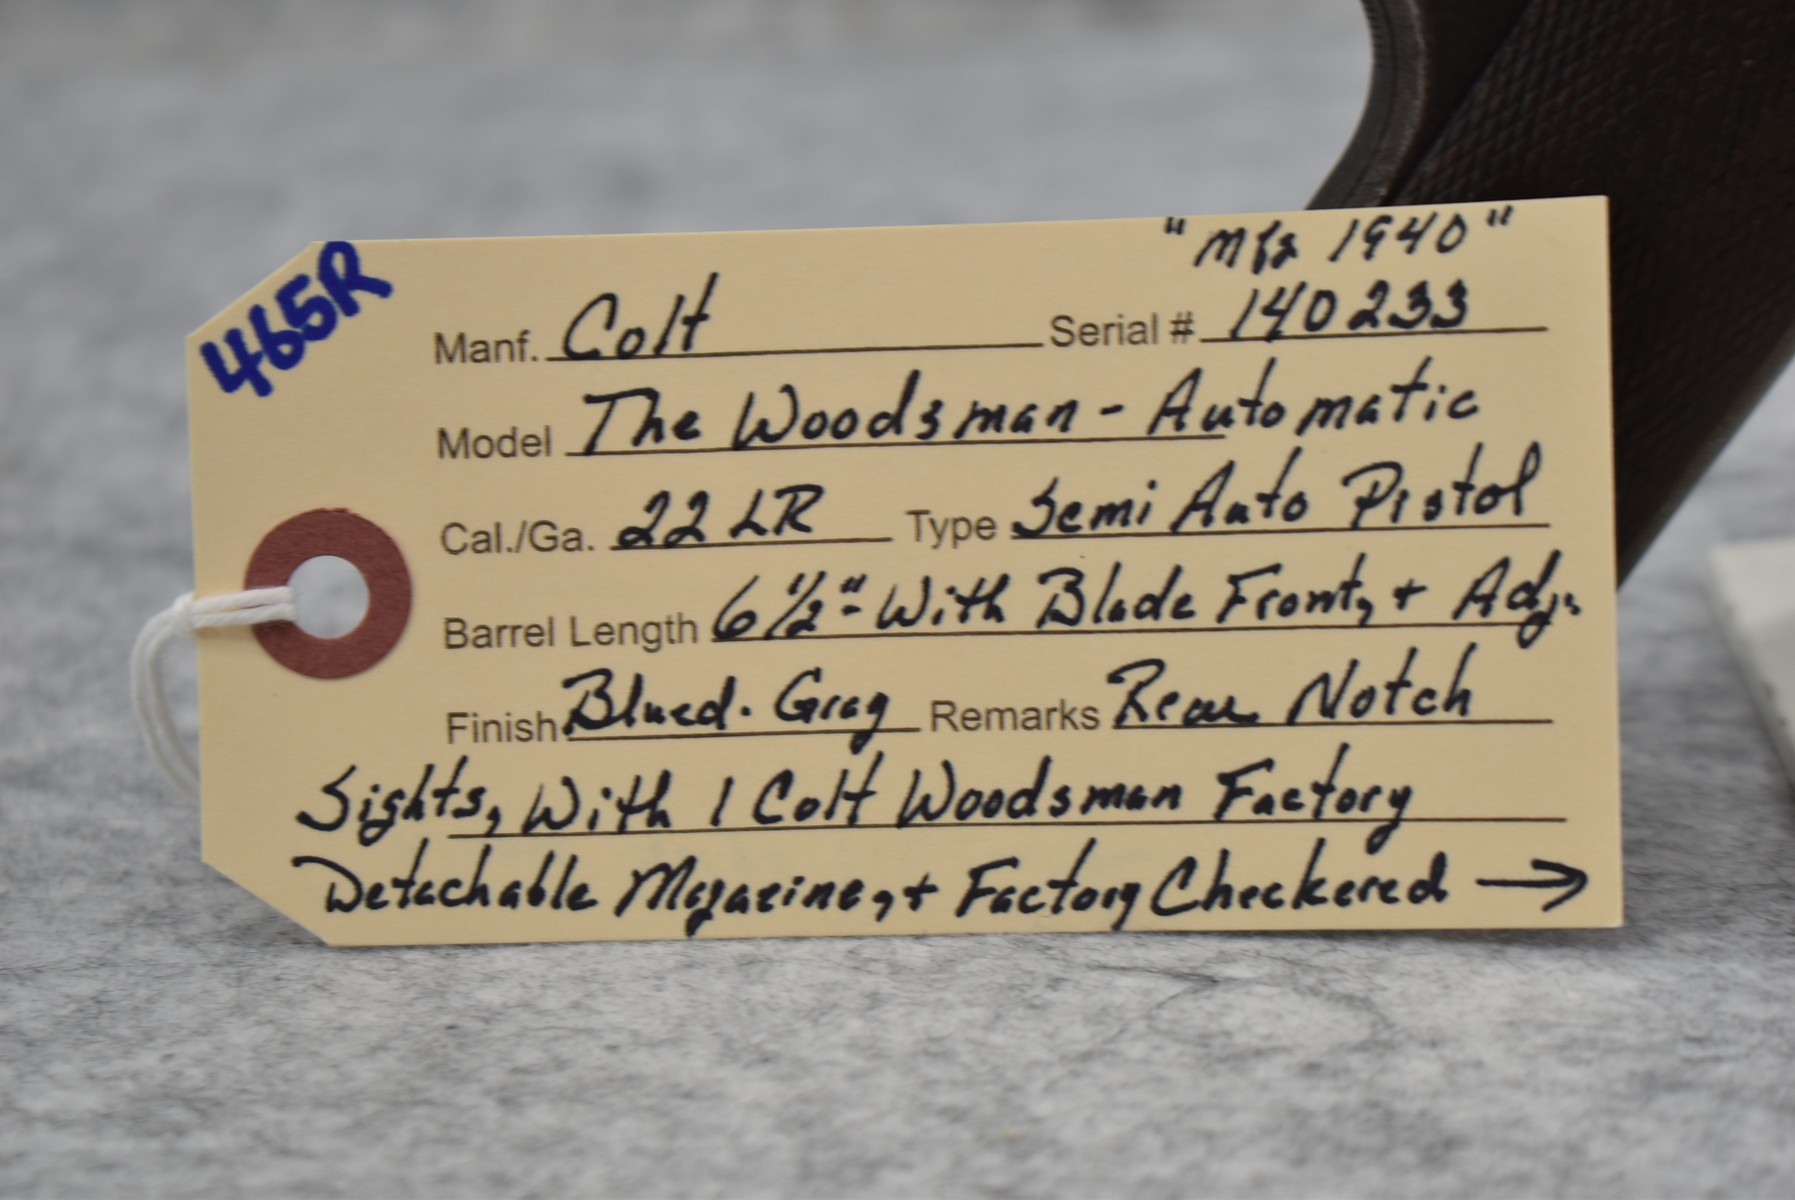 465R
"Mfg 1940"
Manf. Colt Serial # 140233
Model The Woodsman - Automatic
Cal./Ga. 22 LR Type Semi Auto Pistol
Barrel Length 6 1/2" - With Blade Front, + Adj.
Finish Blued. Gray Remarks Rear Notch
Sights, With 1 Colt Woodsman Factory
Detachable Magazine, + Factory Checkered →